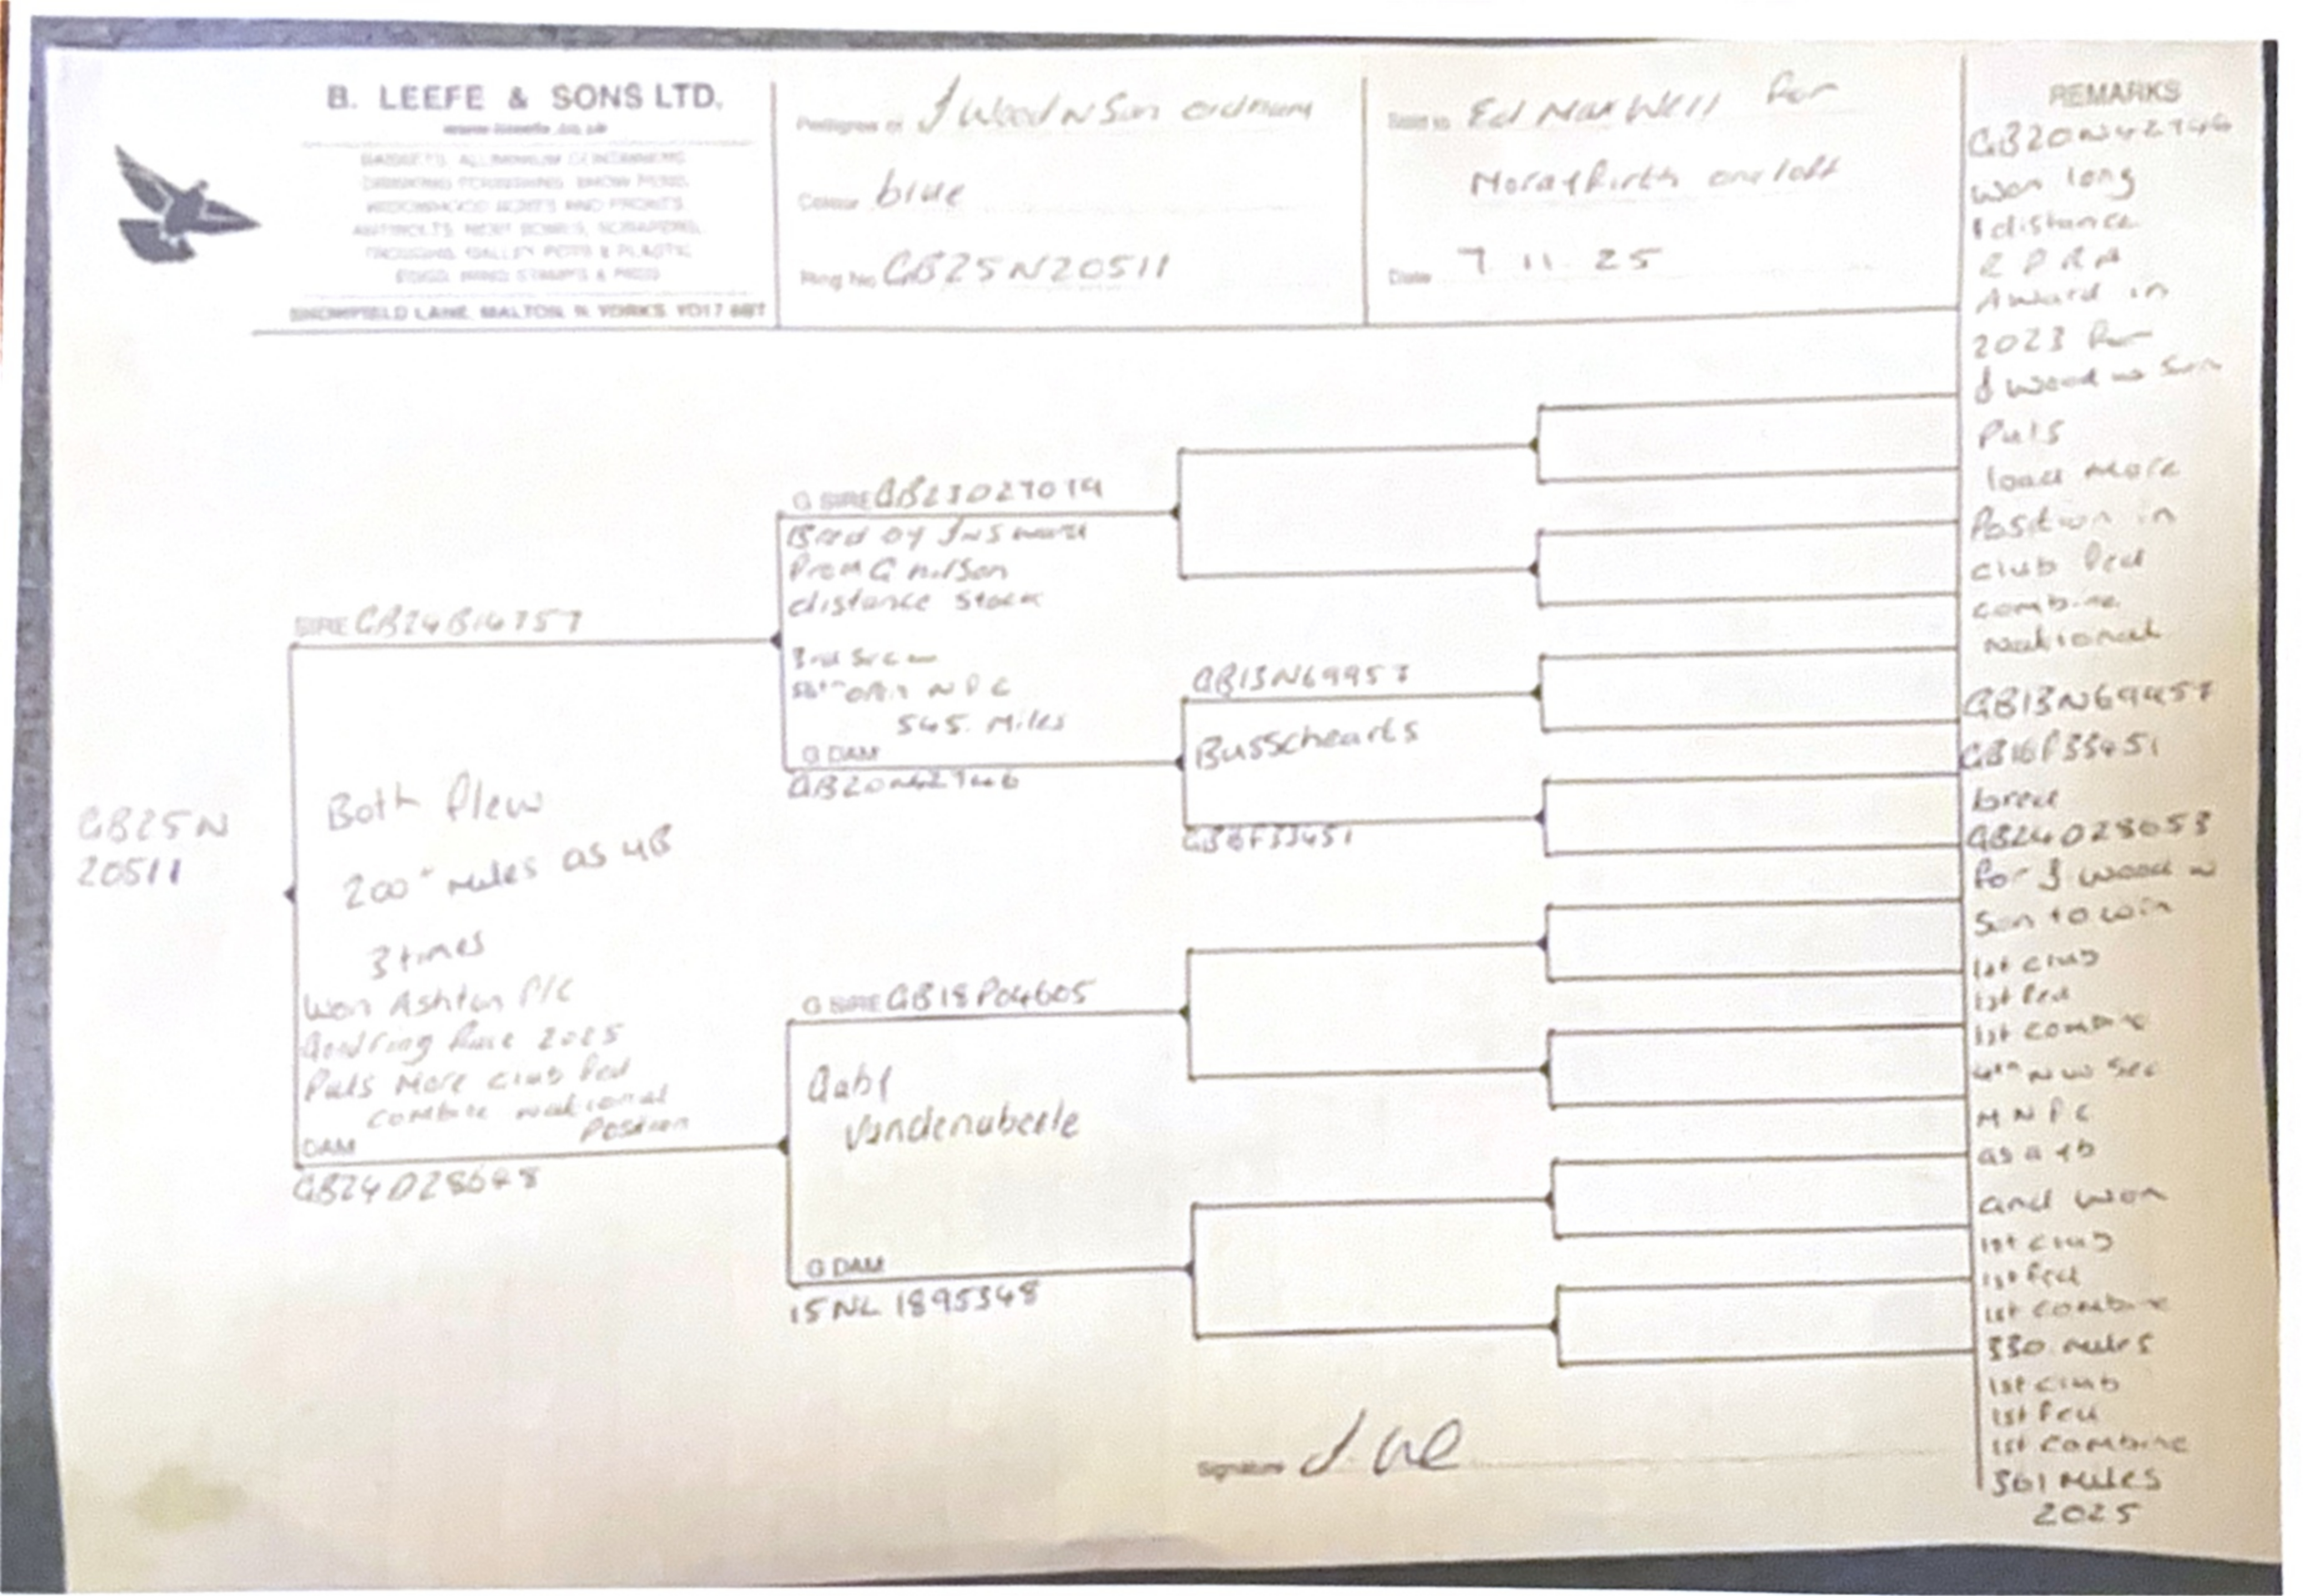 B. LEEFE & SONS LTD.
BROMFIELD LANE, MALTON, N. YORKS. YO17
Pedigree of J Wood N Son
Colour blue
Ring No GB25N20511
Sold to Ed Maxwell for
Morayfirth one loft
Date 7 11 25
GB25N
20511
SIRE GB24B14757
Both flew
200" miles as YB
3 times
Won Ashton P/C
Good ring Race 2025
Puls More club fed
combine national
Position
DAM
GB24D28648
G SIRE GB23D27019
Bred by
from G
distance stock
3rd Sec
open N F C
545. Miles
G DAM
GB20N42746
GB13N69957
Busschearts
GB16F33451
G SIRE GB18P04605
Gaby
Vandenabeele
G DAM
15NL 1895348
Signature
REMARKS
GB20N42746
won long
distance
R P R A
Award in
2023 for
J Wood N Son
Puls
load More
Position in
club fed
combine
national
GB13N69957
GB16F33451
bred
GB24D28653
for J Wood N
Son to win
1st club
1st fed
1st combine
4th N W Sec
M N F C
as a yb
and won
1st club
1st fed
1st combine
330 miles
1st club
1st fed
1st combine
361 miles
2025